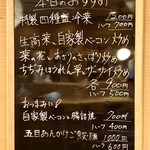 本日のおすすめ
特製四種盛冷菜 1,200円
ハーフ 700円
生高菜、自家製ベーコン炒め
菜の花、あさり、さっぱり炒め
ちぢみほうれん草、ザーサイ炒め
各 900円
ハーフ 500円
おつまみに!
自家製ベーコンと腸詰焼 700円
ハーフ 400円
五目あんかけご飯 1000円
ハーフ 600円